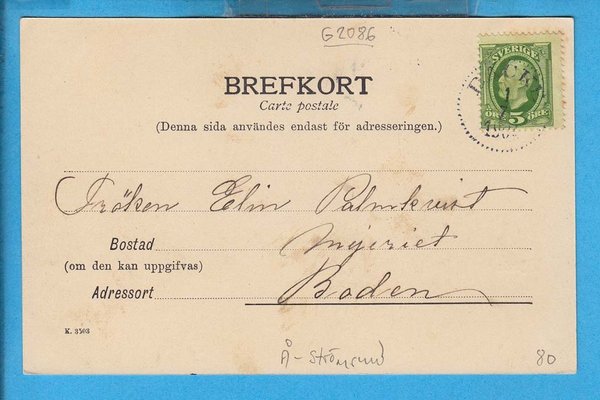 G2086
SVERIGE
ÖRE 5 ÖRE
BREFKORT
Carte postale
(Denna sida användes endast för adresseringen.)
Fröken Elin Palmkvist
Bostad Mejeriet
(om den kan uppgifvas)
Adressort Boden
K. 3503
Å-Strömsund 80